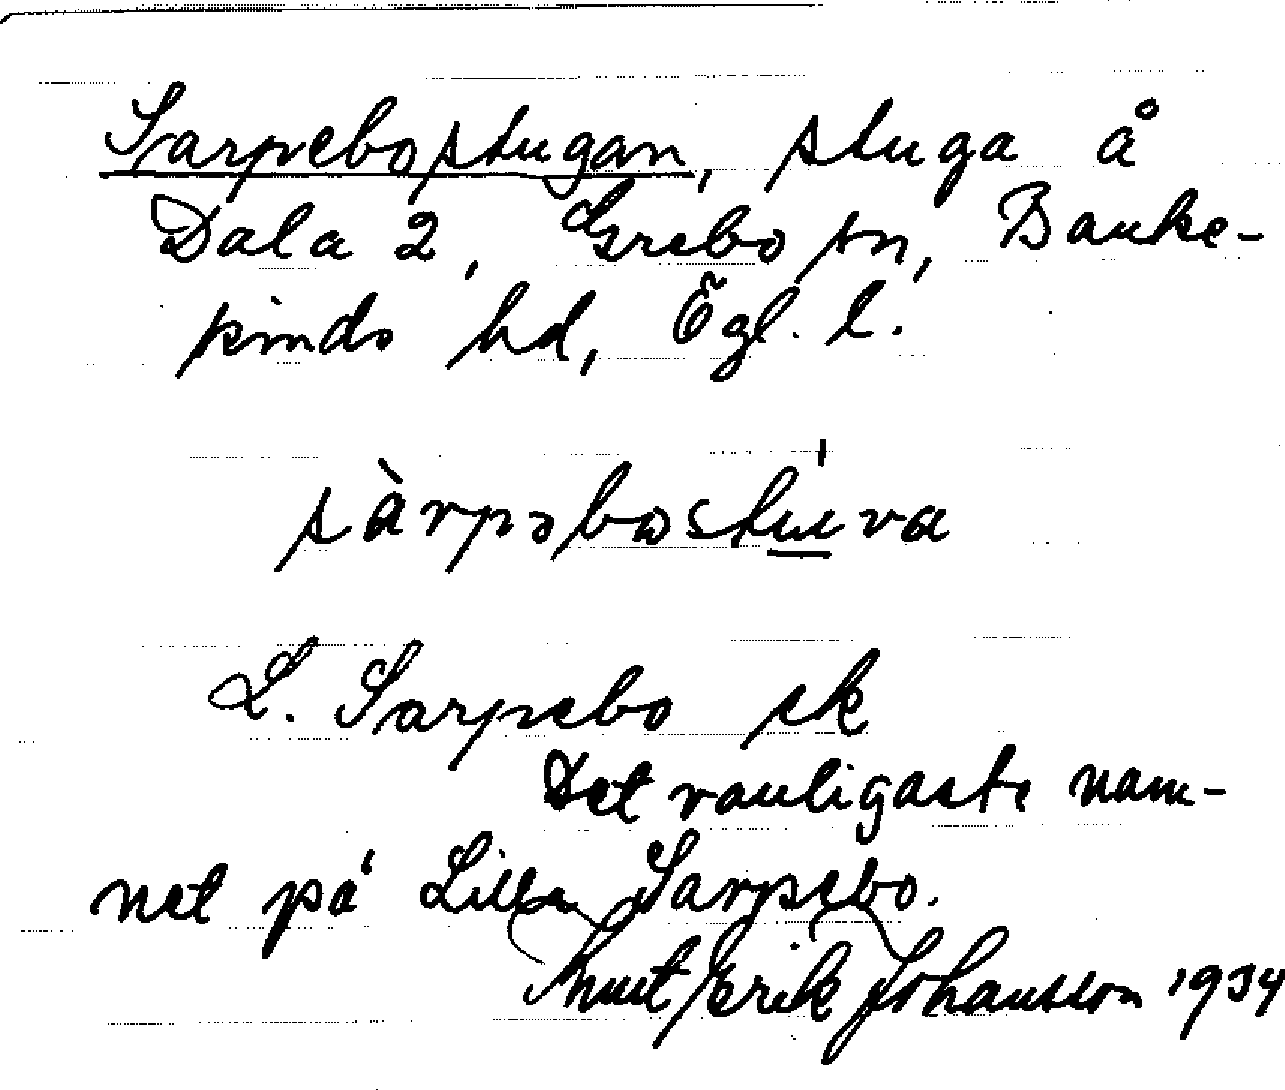 Sarpebostugan, stuga å
Dala 2, Grebo sn, Banke-
kinds hd, Ögl. l.
sàrpəbωstúva
L. Sarpebo ek
Det vanligaste nam-
net på Lilla Sarpebo.
Knut Erik Johansson 1934